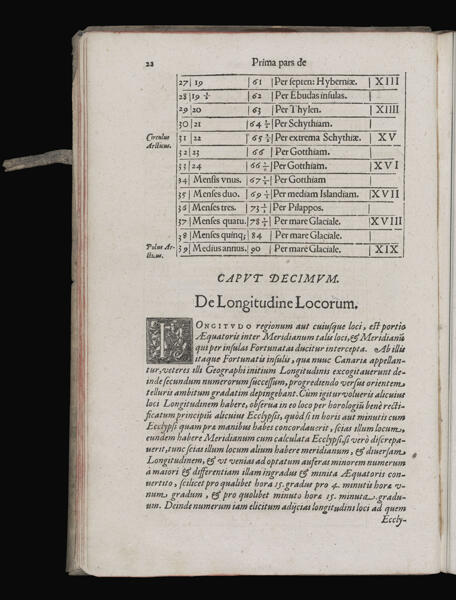 22 Prima pars de
27 | 19 | 61 | Per septen: Hyberniæ. | XIII
28 | 19 ½ | 62 | Per Ebudas insulas.
29 | 20 | 63 | Per Thylen. | XIIII
30 | 21 | 64 | Per Schythiam.
Circulus Arcticus.
31 | 22 | 65 | Per extrema Schythiæ. | XV
32 | 23 | 66 | Per Gotthiam.
33 | 24 | 66 | Per Gotthiam. | XVI
34 | Mensis vnus. | 67 | Per Gotthiam
35 | Menses duo. | 69 | Per mediam Islandiam. | XVII
36 | Menses tres. | 73 | Per Pilappos.
37 | Menses quatu. | 78 | Per mare Glaciale. | XVIII
38 | Menses quinq; | 84 | Per mare Glaciale.
Polus Arcticus.
39 | Medius annus. | 90 | Per mare Glaciale. | XIX
CAPVT DECIMVM.
De Longitudine Locorum.
LONGITVDO regionum aut cuiusque loci, est portio
Æquatoris inter Meridianum talis loci, & Meridianū
qui per insulas Fortunatas ducitur intercepta. Ab illis
itaque Fortunatis insulis, qua nunc Canariæ appellan-
tur, veteres illi Geographi initium Longitudinis excogitauerunt de-
inde secundum numerorum successum, progrediendo versus orientem
telluris ambitum gradatim depingebant. Cum igitur volueris alicuius
loci Longitudinem habere, obserua in eo loco per horologiū benè recti-
ficatum principiū alicuius Ecclypsis, quòd si in horis aut minutis cum
Ecclypsi quam præ manibus habes concordauerit, scias illum locum,
eundem habere Meridianum cum calculata Ecclypsi, si verò discrepa-
uerit, tunc scias illum locum alium habere meridianum, & diuersam
Longitudinem, & vt venias ad optatum auferas minorem numerum
à maiori & differentiam illam in gradus & minuta Æquatoris con-
uertito, scilicet pro qualibet hora 15. gradus pro 4. minutis horæ v-
num gradum, & pro quolibet minuto horæ 15. minuta gradu-
um. Deinde numerum iam elicitum adijcias longitudini loci ad quem
Eccly-